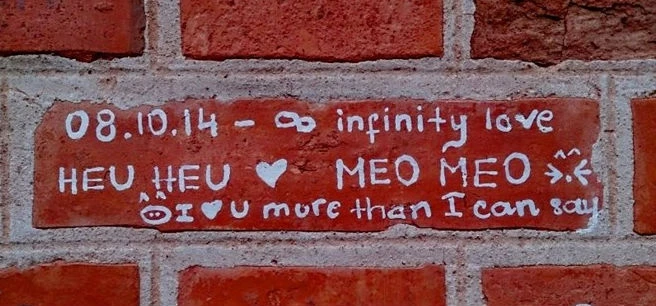 08.10.14 - ∞ infinity love
HEU HEU ♥ MEO MEO >.<
I ♥ U more than I can say